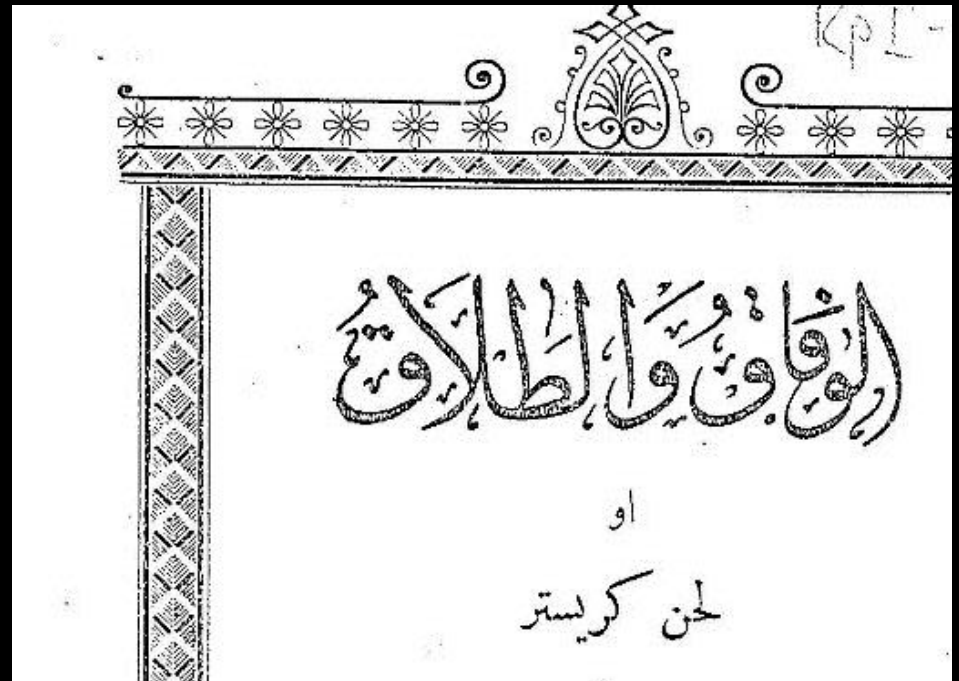 Kp I -
الْوِفَاقُ وَالطَّلَاقُ
او
لحن كريستر